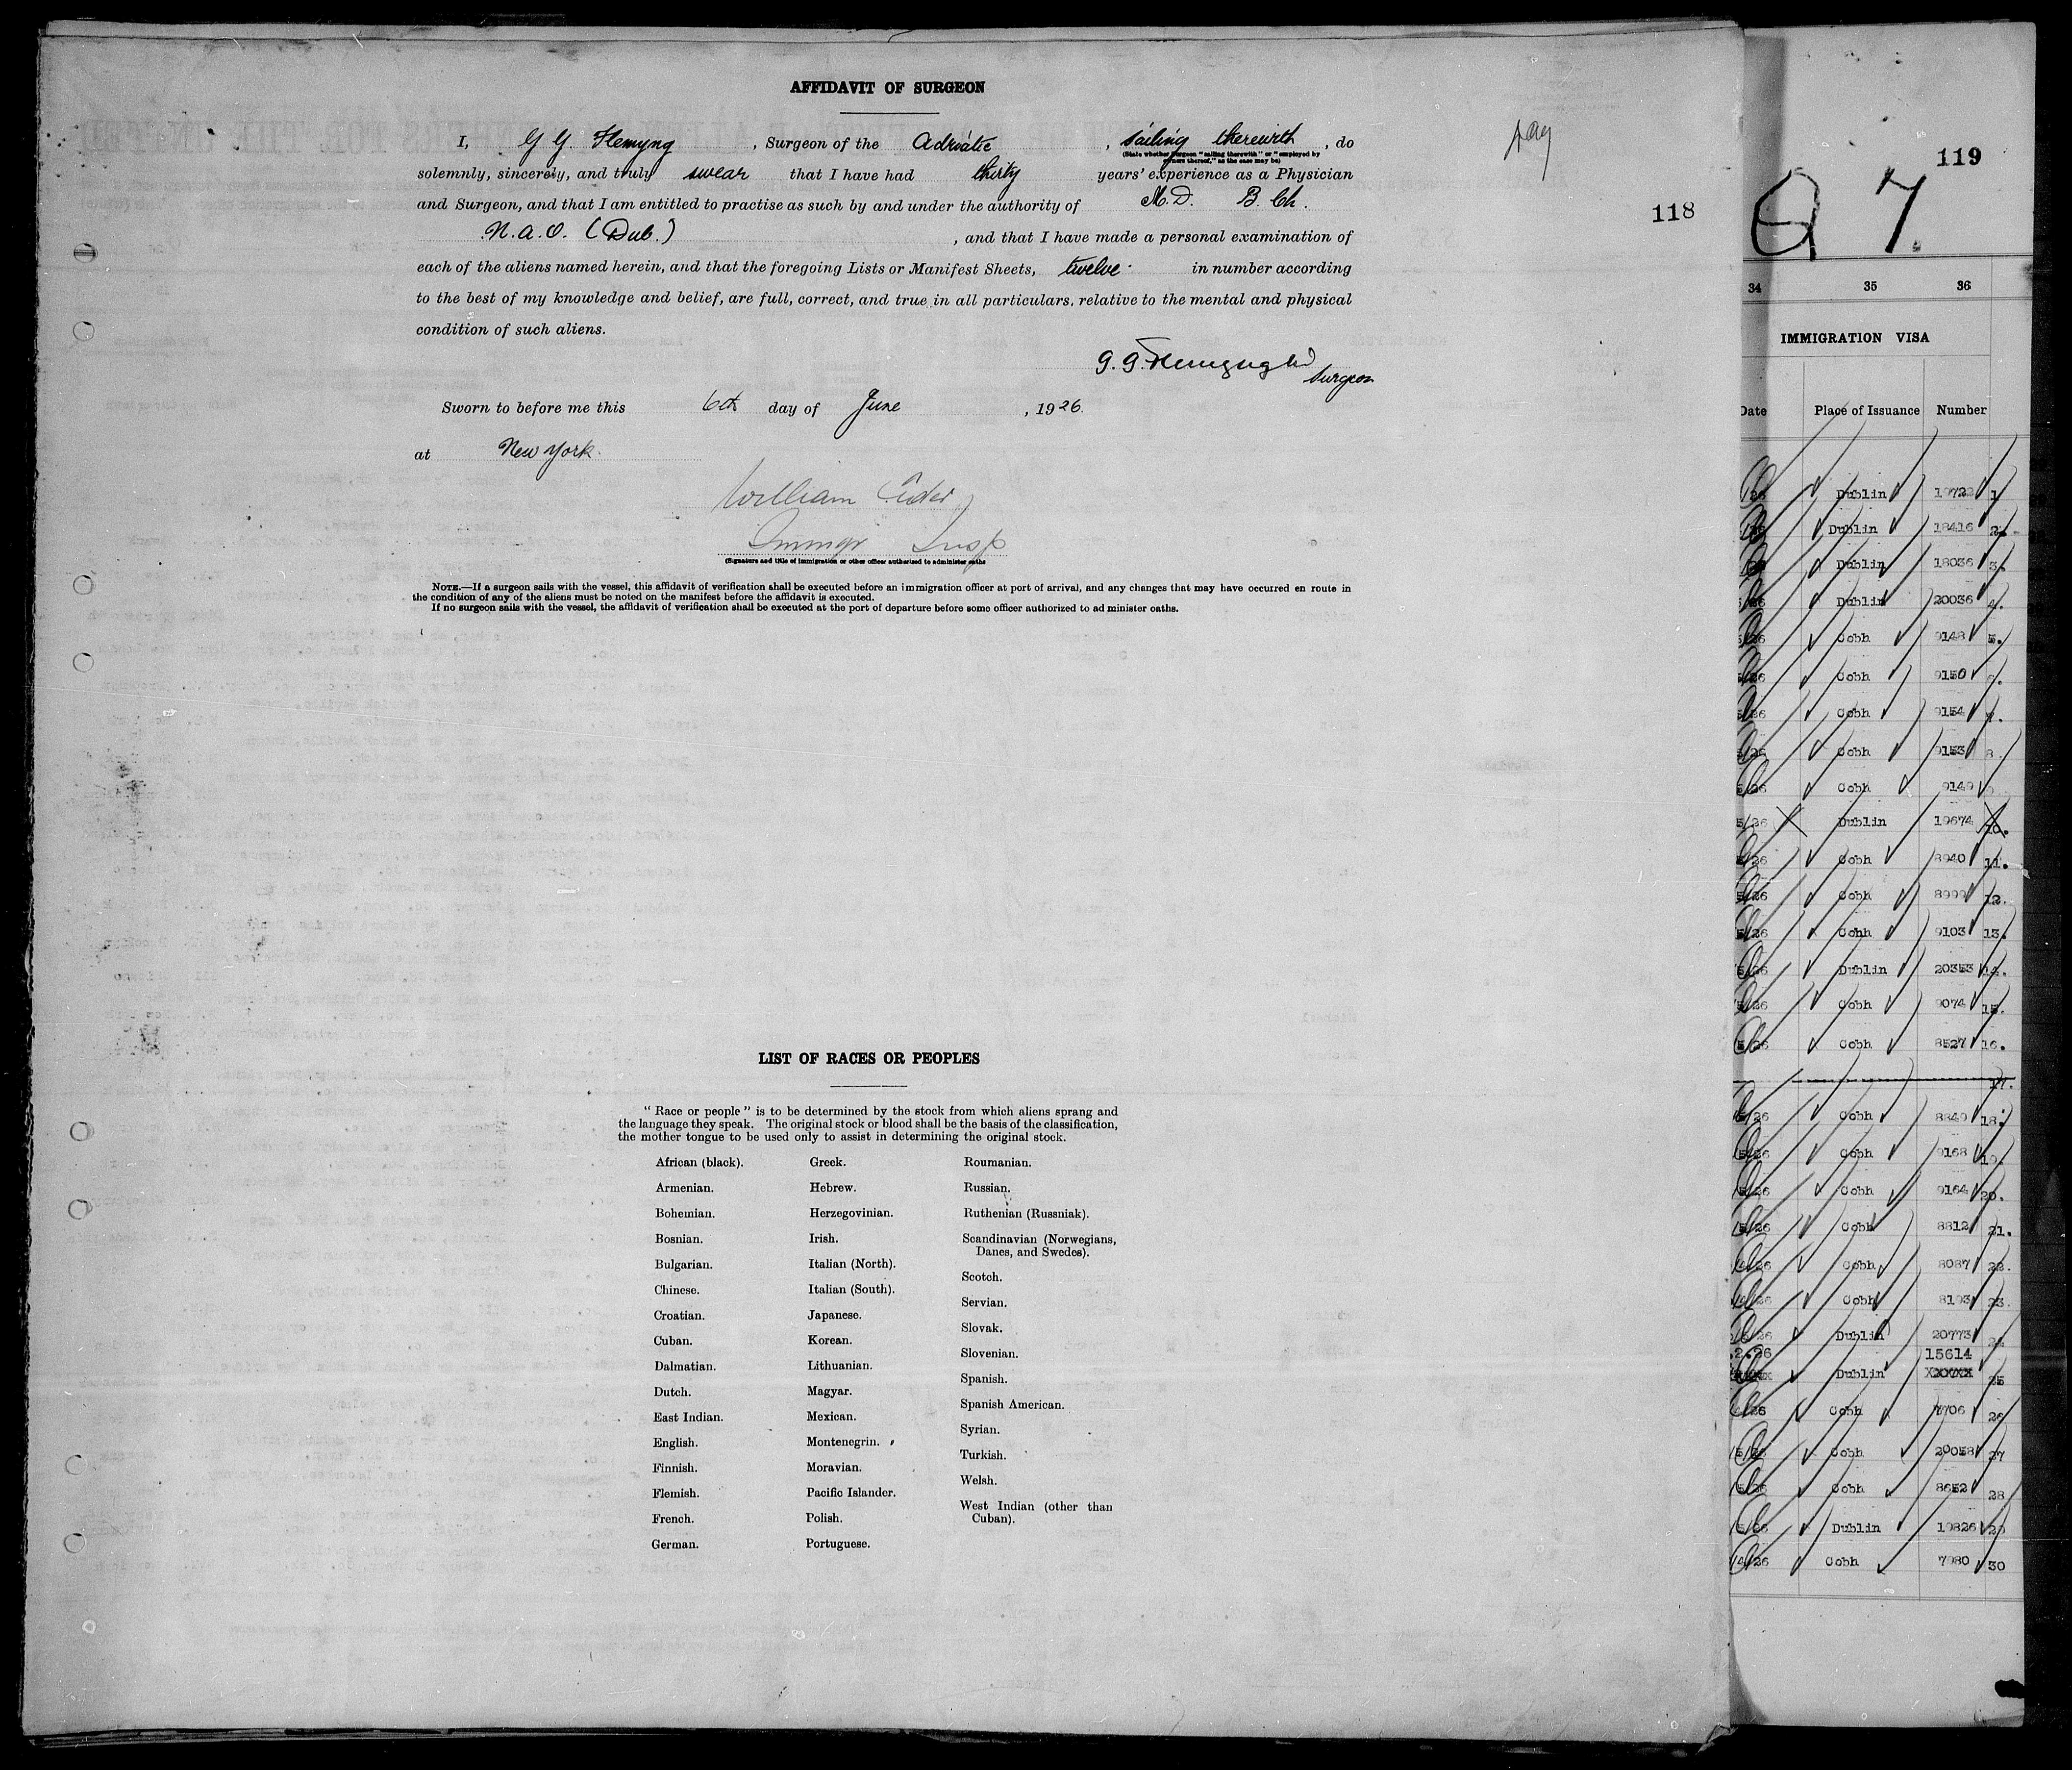 AFFIDAVIT OF SURGEON
I, G G Flemyng, Surgeon of the Adriatic, sailing therewith, do
(State whether Surgeon "sailing therewith" or "employed by
owners thereof," as the case may be)
solemnly, sincerely, and truly swear that I have had thirty years' experience as a Physician
and Surgeon, and that I am entitled to practise as such by and under the authority of M.D. B. Ch.
(Dub.), and that I have made a personal examination of
each of the aliens named herein, and that the foregoing Lists or Manifest Sheets, twelve in number according
to the best of my knowledge and belief, are full, correct, and true in all particulars, relative to the mental and physical
condition of such aliens.
Surgeon
Sworn to before me this 6th day of June, 1926.
at New York.
William
Immgr Insp
(Signature and title of immigration or other officer authorized to administer oaths
NOTE.—If a surgeon sails with the vessel, this affidavit of verification shall be executed before an immigration officer at port of arrival, and any changes that may have occurred en route in
the condition of any of the aliens must be noted on the manifest before the affidavit is executed.
If no surgeon sails with the vessel, the affidavit of verification shall be executed at the port of departure before some officer authorized to administer oaths.
118
LIST OF RACES OR PEOPLES
"Race or people" is to be determined by the stock from which aliens sprang and
the language they speak. The original stock or blood shall be the basis of the classification,
the mother tongue to be used only to assist in determining the original stock.
African (black).
Armenian.
Bohemian.
Bosnian.
Bulgarian.
Chinese.
Croatian.
Cuban.
Dalmatian.
Dutch.
East Indian.
English.
Finnish.
Flemish.
French.
German.
Greek.
Hebrew.
Herzegovinian.
Irish.
Italian (North).
Italian (South).
Japanese.
Korean.
Lithuanian.
Magyar.
Mexican.
Montenegrin.
Moravian.
Pacific Islander.
Polish.
Portuguese.
Roumanian.
Russian.
Ruthenian (Russniak).
Scandinavian (Norwegians,
Danes, and Swedes).
Scotch.
Servian.
Slovak.
Slovenian.
Spanish.
Spanish American.
Syrian.
Turkish.
Welsh.
West Indian (other than
Cuban).
119
7.
34 35 36
IMMIGRATION VISA
Date Place of Issuance Number
26 Dublin 1
Dublin 18416 2.
Dublin 18036 3.
26 Dublin 20036 4.
26 Cobh 9148 5.
26 Cobh 9150
26 Cobh 9154
26 Cobh 9153 8
26 Cobh 9149
5/26 Dublin 19674 10.
26 Cobh 8940 11.
26 Cobh 12.
26 Cobh 9103 13.
26 Dublin 20353 14.
26 Cobh 9074 15.
26 Cobh 8527 16.
17.
26 Cobh 8849 18.
26 Cobh 9168 19.
26 Cobh 9164 20.
26 Cobh 8812 21.
26 Cobh 8087 22.
26 Cobh 8193 23.
26 Dublin 20773 24
.2.26 15614
Dublin 25
26 Cobh 7706 26
26 Cobh 20058 27
26 Cobh 8652 28
26 Dublin 19826 29
26 Cobh 7980 30